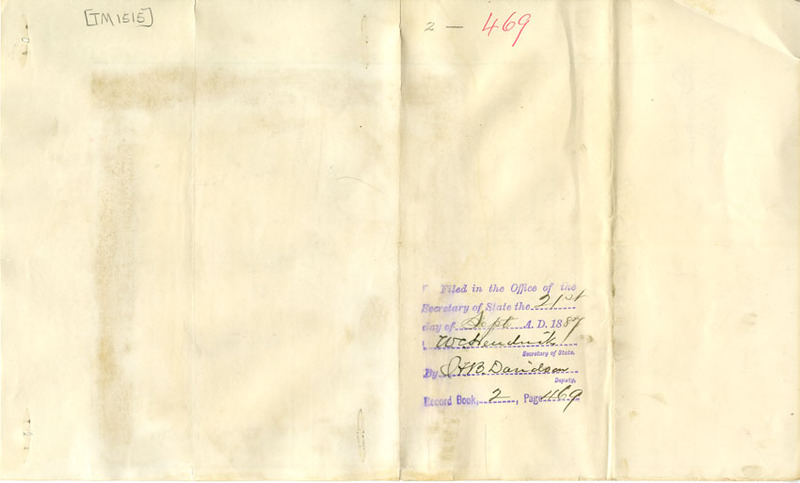 [TM1515]
2 - 469
Filed in the Office of the
Secretary of State the 21st
day of Sept A. D. 1887
W C Hendricks
Secretary of State.
By H B. Davidson
Deputy.
Record Book, 2, Page 469